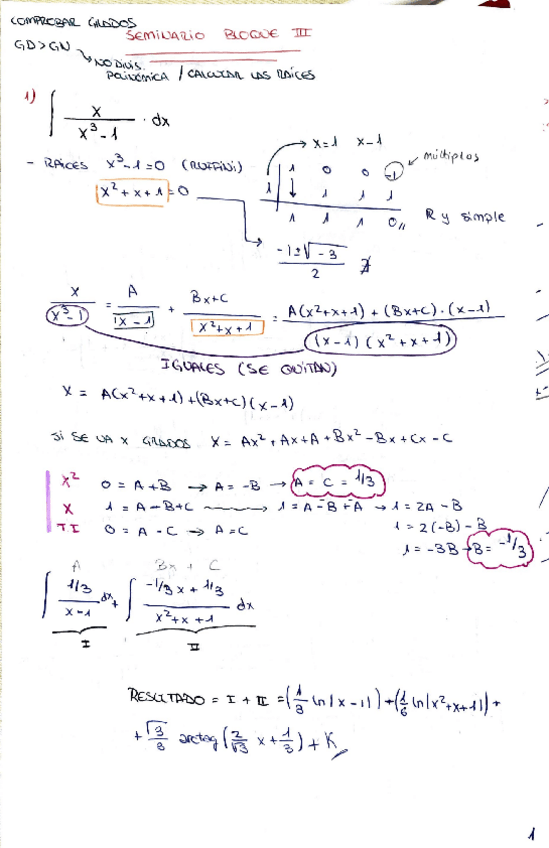 COMPROBAR GRADOS
SEMINARIO BLOQUE III
GD>GN
↘ NO DIVIS.
POLINÓMICA / CALCULAR LAS RAÍCES
1) ∫ x/(x³-1) · dx
x=1 x-1
- RAÍCES x³-1=0 (RUFFINI)
1 0 0 -1 → múltiplos
1 ↓ 1 1 1
1 1 1 0,, R y simple
x²+x+1=0
(-1±√-3)/2 ∄
x/(x³-1) = A/(x-1) + (Bx+C)/(x²+x+1) = (A(x²+x+1)+(Bx+C)·(x-1))/((x-1)(x²+x+1))
IGUALES (SE QUITAN)
x = A(x²+x+1)+(Bx+C)(x-1)
SI SE VA X GRADOS x = Ax²+Ax+A+Bx²-Bx+Cx-C
x² 0 = A+B → A = -B → A = C = 1/3
x 1 = A-B+C → 1 = A-B+A → 1 = 2A-B
TI 0 = A-C → A=C 1 = 2(-B)-B
1 = -3B → B = -1/3
A Bx + C
∫ (1/3)/(x-1) dx + ∫ (-1/3x + 1/3)/(x²+x+1) dx
I II
RESULTADO = I + II = (1/3 ln|x-1|)+(1/6 ln|x²+x+1|)+
+ √3/3 arctag (2/√3 x + 1/3) + K
1